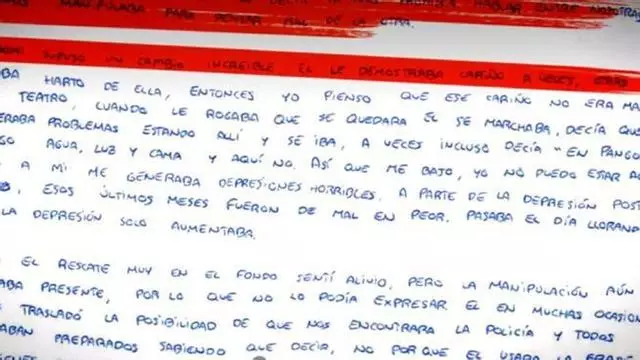 MANIPULABA PARA PENSAR MAL DE LA OTRA.
UN CAMBIO INCREIBLE EL LE DEMOSTRABA CARIÑO A VECES, OTRAS
HARTO DE ELLA, ENTONCES YO PIENSO QUE ESE CARIÑO NO ERA MA
TEATRO, CUANDO LE ROGABA QUE SE QUEDARA EL SE MARCHABA, DECÍA QUE
PROBLEMAS ESTANDO ALLÍ Y SE IBA, A VECES INCLUSO DECÍA "EN PANGO
AGUA, LUZ Y CAMA Y AQUÍ NO. ASÍ QUE ME BAJO, YO NO PUEDO ESTAR A
A MI ME GENERABA DEPRESIONES HORRIBLES. A PARTE DE LA DEPRESIÓN POST
ESOS ÚLTIMOS MESES FUERON DE MAL EN PEOR. PASABA EL DÍA LLORAND
LA DEPRESIÓN SOLO AUMENTABA.
EL RESCATE MUY EN EL FONDO SENTÍ ALIVIO, PERO LA MANIPULACIÓN AÚN
ABA PRESENTE, POR LO QUE NO LO PODÍA EXPRESAR. EL EN MUCHAS OCASION
TRASLADÓ LA POSIBILIDAD DE QUE NOS ENCONTRARA LA POLICÍA Y TODOS
ABAN PREPARADOS SABIENDO QUE DECIR, NO PORQUE EL USARA LA FRAS